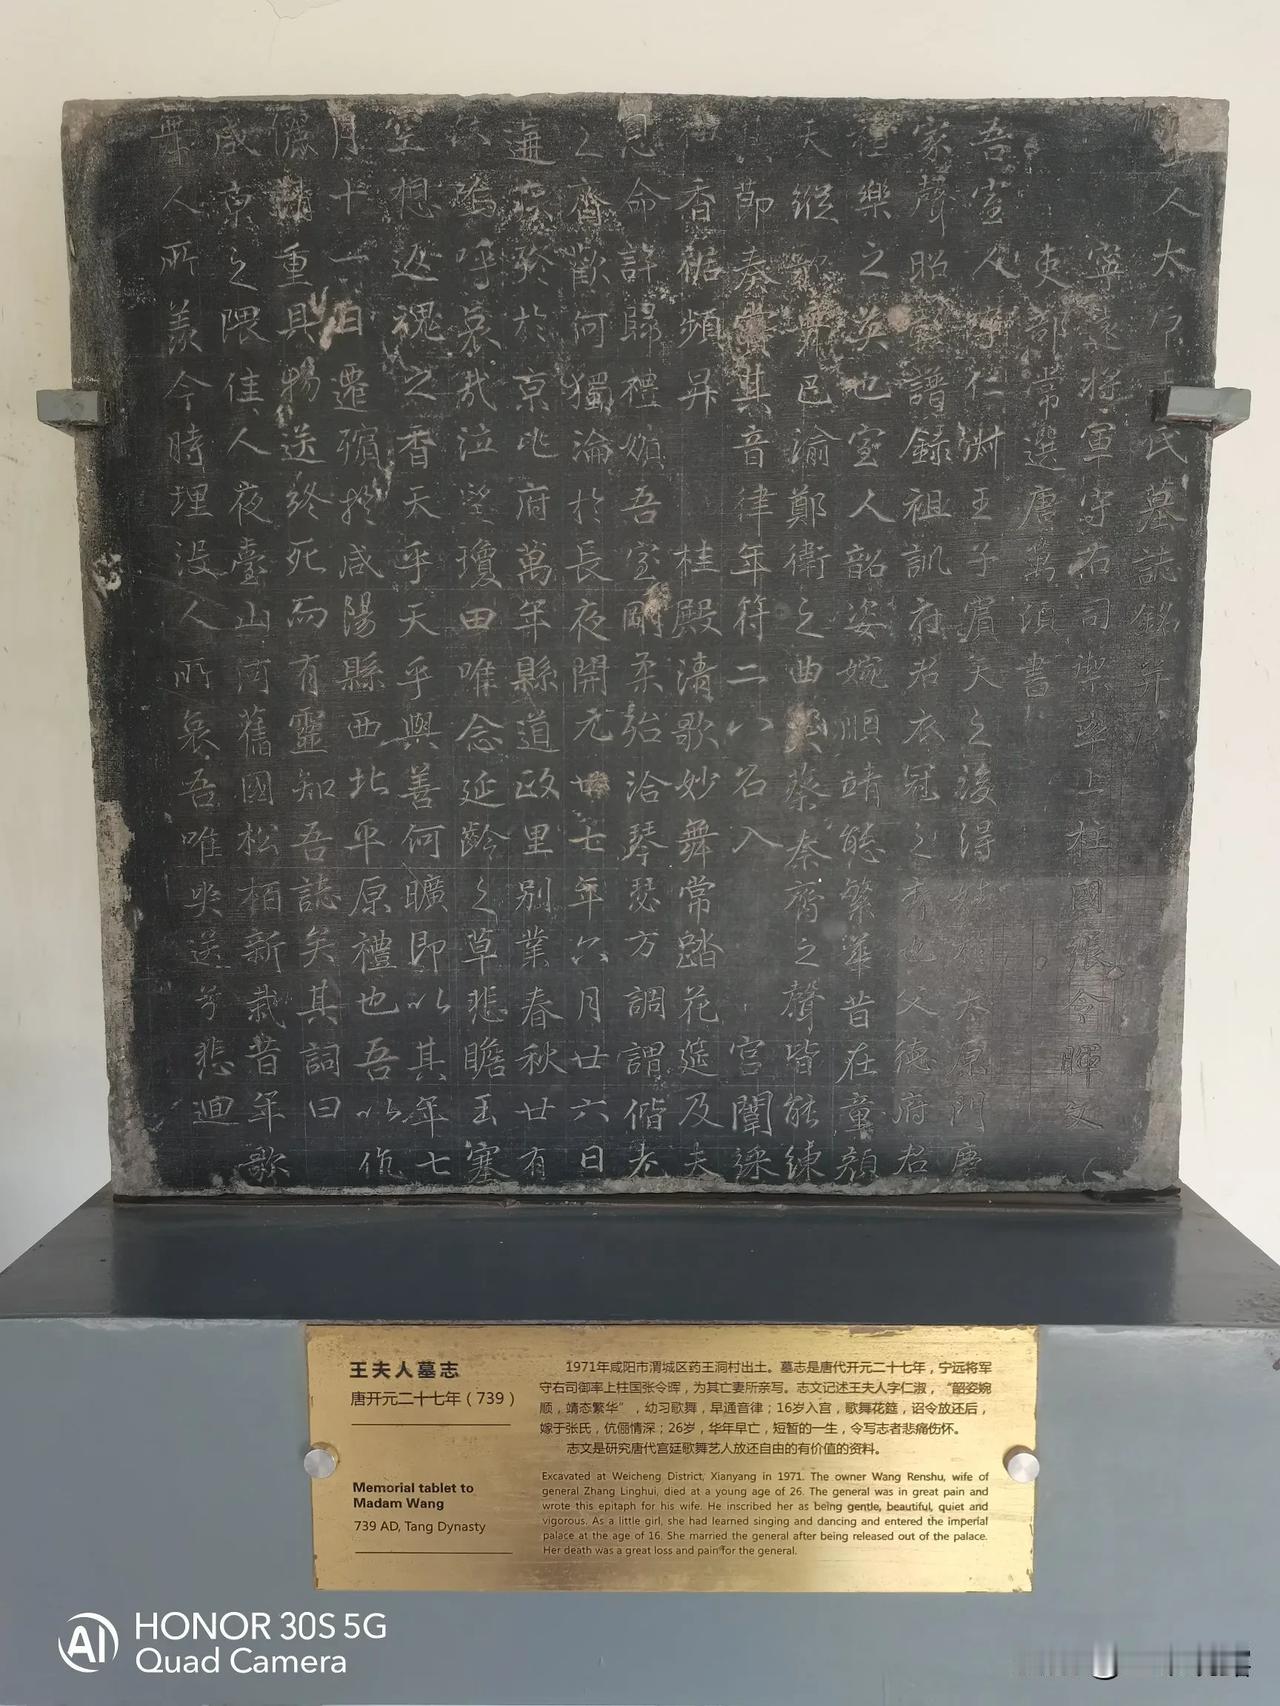 人太原王氏墓誌銘并序
寧遠將軍守右司禦率上柱國張令暉文
吏部常選唐萬須書
吾室人字仁淑王子賓天之後得姓於太原門
家聲昭譜錄祖訓府君衣冠之秀也父德府君
禮樂之英也室人韶姿婉順靖態繁華昔在童顏
天縱歌舞邑渝鄭衛之曲與蔡秦齊之聲皆能練
其節奏其音律年符二八名入宮闈綵
袖香裾頻昇桂殿清歌妙舞常踏花筵及夫
恩命許歸禮嬪吾室剛柔始洽琴瑟方調謂偕老
之齊歡何獨淪於長夜開元廿七年六月廿六日
遘疾終於京兆府萬年縣道政里別業春秋廿有
六嗚呼哀哉泣望瓊田唯念延齡之草悲瞻玉塞
空想返魂之香天乎天乎與善何曠即以其年七
月十一日遷殯於咸陽縣西北平原禮也吾以伉
儷情重具物送終死而有靈知吾誌矣其詞曰
咸京之隈佳人夜臺山河舊國松栢新栽昔年歌
舞人所羨今時埋沒人所哀吾唯哭送兮悲迴
王夫人墓志
唐开元二十七年（739）
Memorial tablet to
Madam Wang
739 AD, Tang Dynasty
1971年咸阳市渭城区药王洞村出土。墓志是唐代开元二十七年，宁远将军
守右司御率上柱国张令晖，为其亡妻所亲写。志文记述王夫人字仁淑，“韶姿婉
顺，靖态繁华”，幼习歌舞，早通音律；16岁入宫，歌舞花筵，诏令放还后，
嫁于张氏，伉俪情深；26岁，华年早亡，短暂的一生，令写志者悲痛伤怀。
志文是研究唐代宫廷歌舞艺人放还自由的有价值的资料。
Excavated at Weicheng District, Xianyang in 1971. The owner Wang Renshu, wife of
general Zhang Linghui, died at a young age of 26. The general was in great pain and
wrote this epitaph for his wife. He inscribed her as being gentle, beautiful, quiet and
vigorous. As a little girl, she had learned singing and dancing and entered the imperial
palace at the age of 16. She married the general after being released out of the palace.
Her death was a great loss and pain for the general.
HONOR 30S 5G
Quad Camera